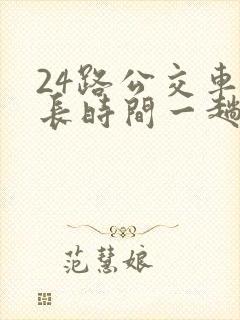 24路公交車
長時間一趟
范慧娘